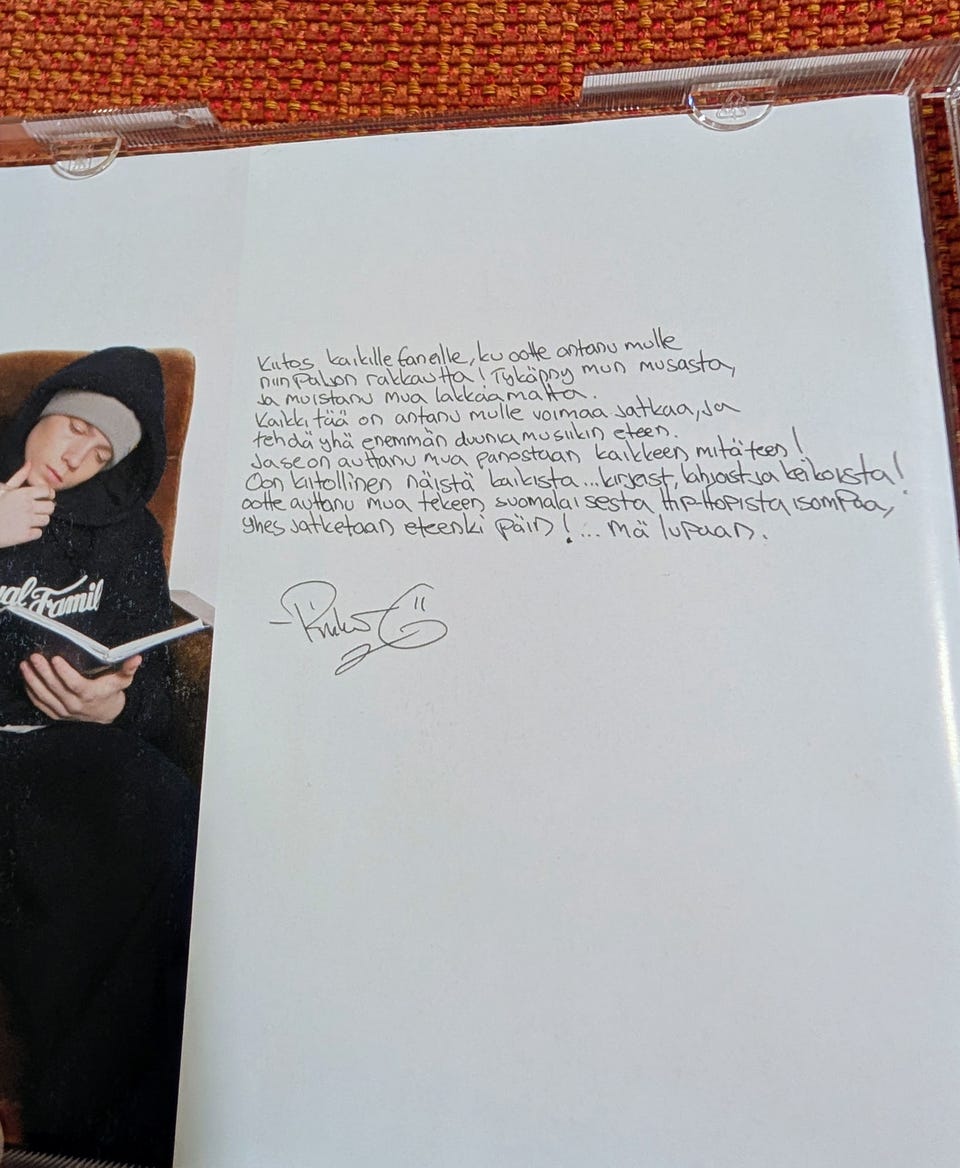 Kiitos kaikille faneille, ku ootte antanu mulle
niin paljon rakkautta! Tykänny mun musasta,
ja muistanu mua lakkaamatta.
Kaikki tää on antanu mulle voimaa jatkaa, ja
tehdä yhä enemmän duunia musiikin eteen.
Ja se on auttanu mua panostaan kaikkeen mitä teen!
Oon kiitollinen näistä kaikista...kirjast, lahjost ja keikoista!
ootte auttanu mua tekeen suomalaisesta Hip-Hopista isompaa,
yhes jatketaan eteenki päin!... mä lupaan.
al Famil